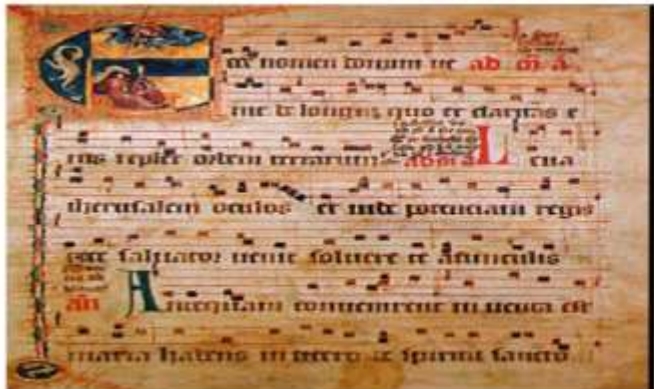 cce nomen domini ue ad m a
nit de longinq quo et claritas e
ius replet orbem terrarum L eua
iherusalem oculos et uide potenciam regis
ecce saluator uenit soluere te a uinculis
an A ntequam conuenirent inuenta est
maria habens in utero de spiritu sancto